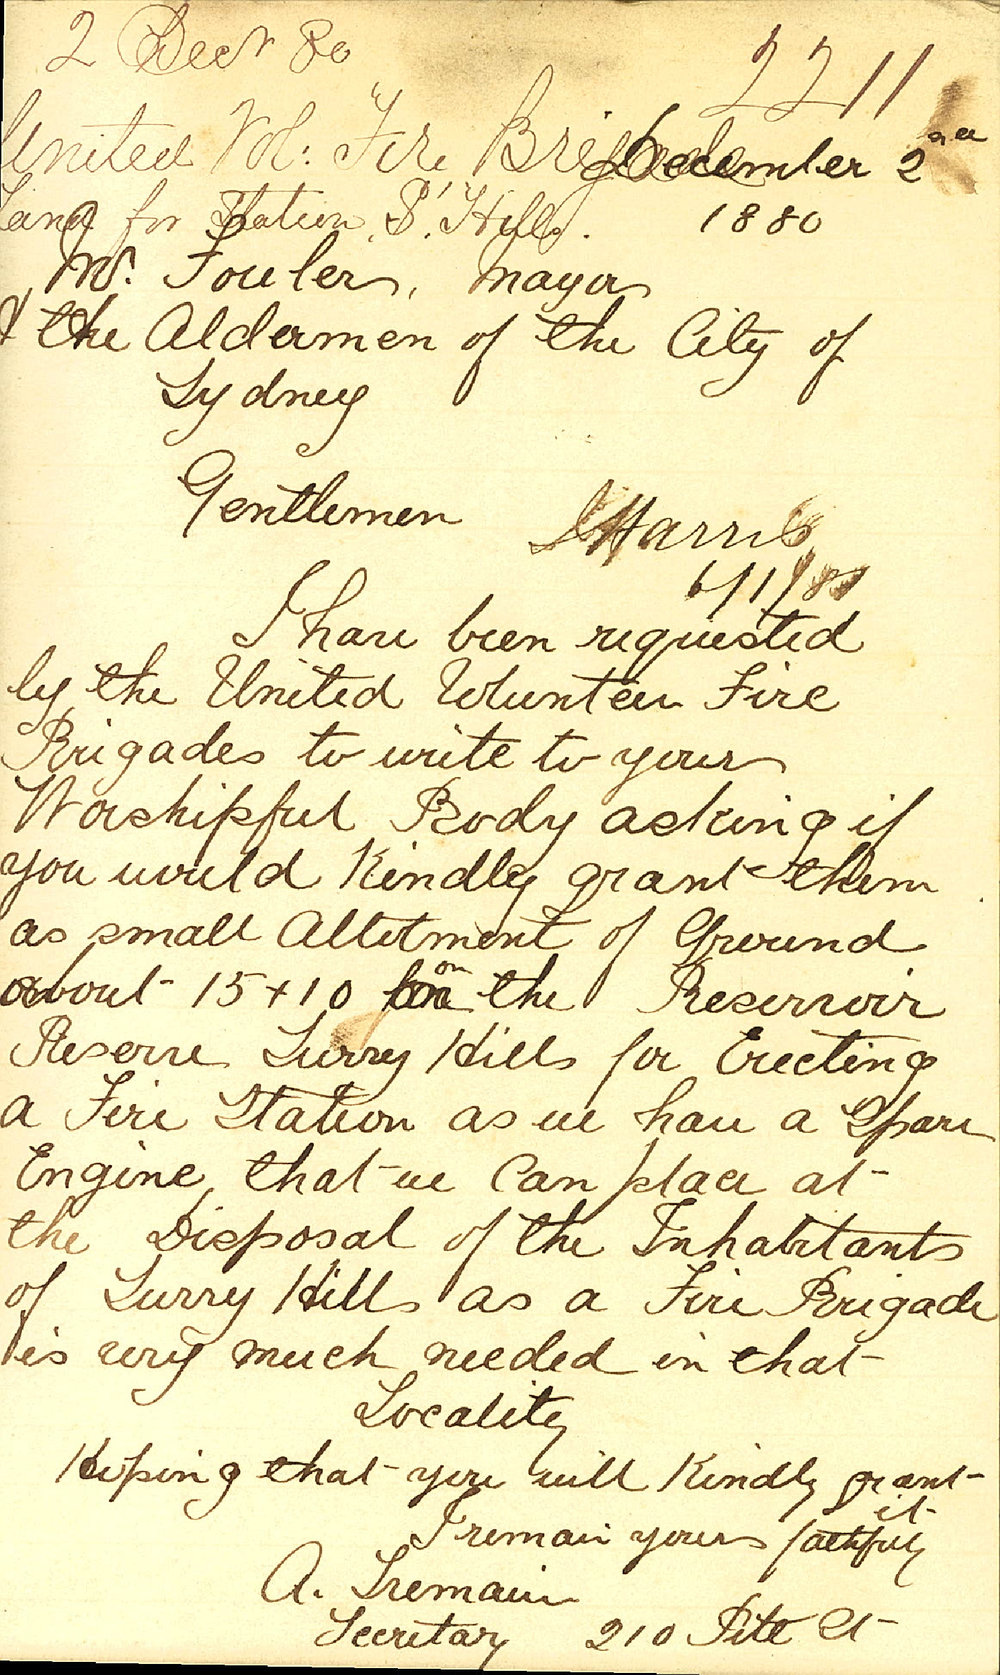 2 Decr 80
2211
United Vol: Fire Brigade
December 2nd
Land for Station, S. Hills.
1880
Mr. Fowler, Mayor
& the Aldermen of the City of
Sydney
Gentlemen
Harris
6/1/81
I have been requested
by the United Volunteer Fire
Brigades to write to your
Worshipful Body asking if
you would Kindly grant them
as small Allotment of Ground
about 15 + 10 on the Reservoir
Reserve Surry Hills for Erecting
a Fire Station as we have a Spare
Engine, that we Can place at
the Disposal of the Inhabitants
of Surry Hills as a Fire Brigade
is very much needed in that
Locality
Hoping that you will Kindly grant
it
I remain yours faithfuly
A. Tremain
Secretary 210 Pitt St